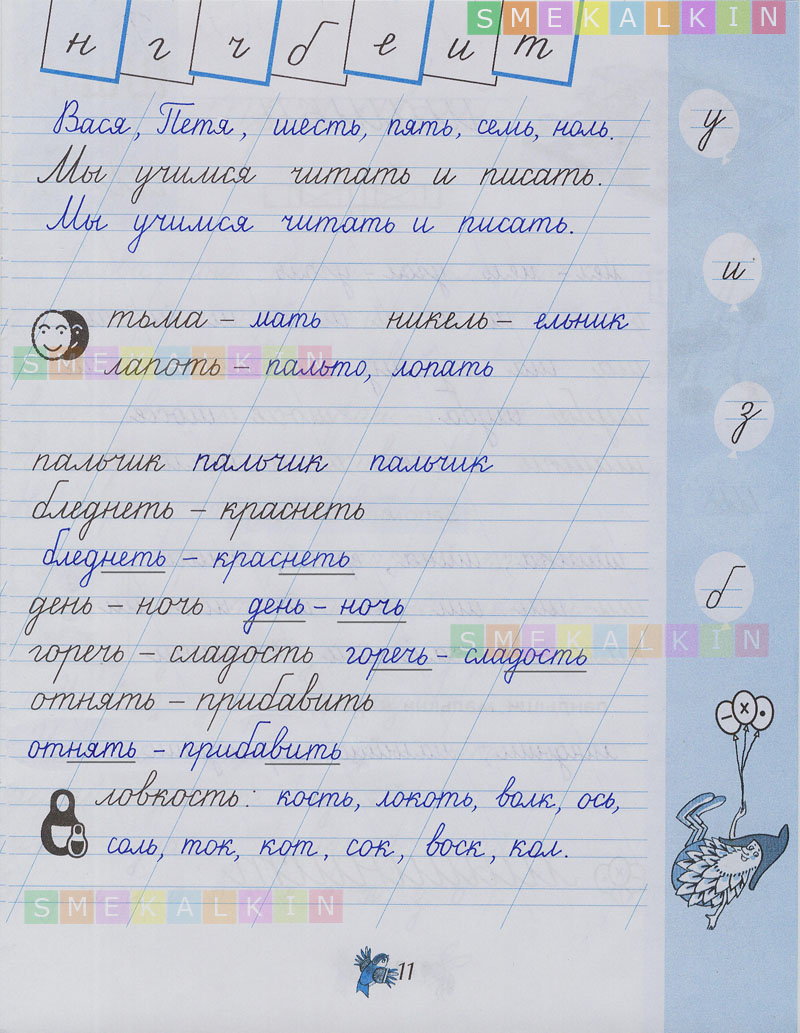 SMEKALKIN
н г ч б е и т
Вася, Петя, шесть, пять, семь, ноль.
у
Мы учимся читать и писать.
Мы учимся читать и писать.
и
тьма – мать никель – ельник
SMEKALKIN
лапоть – пальто, лопать
з
пальчик пальчик пальчик
бледнеть – краснеть
бледнеть – краснеть
б
день – ночь день – ночь
SMEKALKIN
горечь – сладость горечь – сладость
отнять – прибавить
– х •
отнять – прибавить
ловкость: кость, локоть, волк, ось,
соль, ток, кот, сок, воск, кол.
SMEKALKIN
11